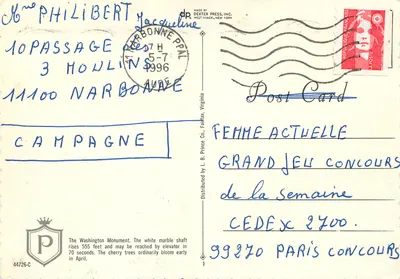 Mme PHILIBERT Jacqueline
10 PASSAGE DES
3 MOULINS
11100 NARBONNE
CAMPAGNE
The Washington Monument. The white marble shaft
rises 555 feet and may be reached by elevator in
70 seconds. The cherry trees ordinarily bloom early
in April.
P
44726-C
Distributed by L. B. Prince Co., Fairfax, Virginia
DPR
MADE BY
DEXTER PRESS, INC.
WEST NYACK, NEW YORK
11 NARBONNE PPAL
17 H
5-7
1996
AUDE
Post Card
FEMME ACTUELLE
GRAND JEU CONCOURS
de la semaine
CEDEX 2700.
99270 PARIS CONCOURS